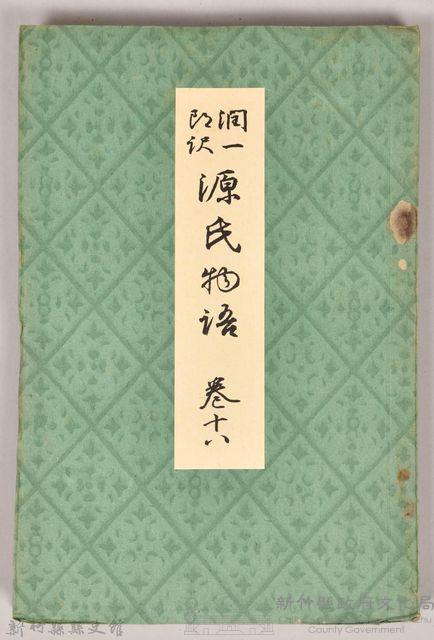 潤一
郎訳
源氏物語 巻十八
新竹縣縣史館
新竹縣政府文化局
County Government